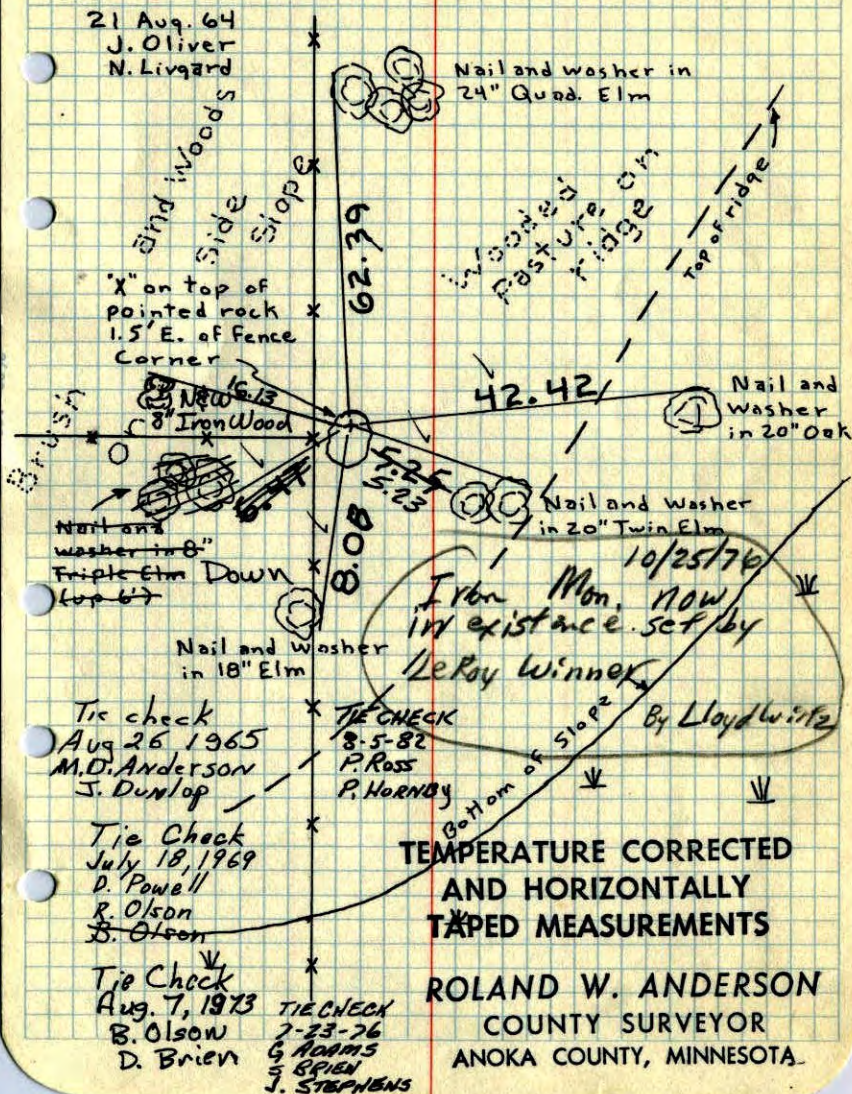 21 Aug. 64
J. Oliver
N. Livgard
Nail and washer in
24" Quad. Elm
and Woods
Side
Slope
62.39
Wooded
Pasture on
ridge
Top of ridge
"X" on top of
pointed rock
1.5' E. of Fence
Corner
16.13
New
8" Iron Wood
42.42
Nail and
Washer
in 20" Oak
Brush
5.25
5.23
Nail and Washer
in 20" Twin Elm
Nail and
washer in 8"
Triple Elm Down
(up 6')
8.08
Nail and Washer
in 18" Elm
10/25/76
Iron Mon. now
in existance set by
LeRoy Winner
By Lloyd Wirtz
Tie check
Aug 26 1965
M.D. Anderson
J. Dunlop
TIE CHECK
8-5-82
P. Ross
P. HORNBY
Bottom of Slope
Tie Check
July 18, 1969
D. Powell
R. Olson
B. Olson
Tie Check
Aug. 7, 1973
B. Olson
D. Brien
TIE CHECK
7-23-76
G ADAMS
S BRIEN
J. STEPHENS
TEMPERATURE CORRECTED
AND HORIZONTALLY
TAPED MEASUREMENTS
ROLAND W. ANDERSON
COUNTY SURVEYOR
ANOKA COUNTY, MINNESOTA